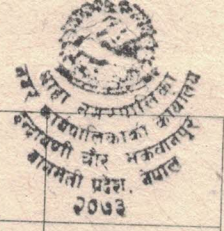 थाहा नगरपालिका
नगर कार्यपालिकाको कार्यालय
इन्द्रायणी चौर मकवानपुर
बागमती प्रदेश, नेपाल
२०७३